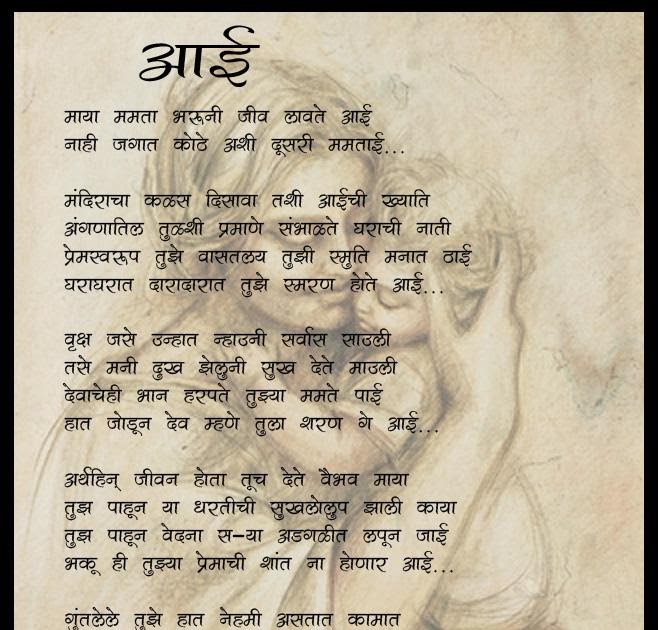 आई
माया ममता भरूनी जीव लावते आई
नाही जगात कोठे अशी दूसरी ममताई...
मंदिराचा कळस दिसावा तशी आईची ख्याति
अंगणातिल तुळशी प्रमाणे संभाळते घराची नाती
प्रेमस्वरूप तुझे वासतलय तुझी स्मुति मनात ठाई
घराघरात दारादारात तुझे स्मरण होते आई...
वृक्ष जसे उन्हात न्हाउनी सर्वास साउली
तसे मनी दुख झेलुनी सुख देते माउली
देवाचेही भान हरपते तुझ्या ममते पाई
हात जोडून देव म्हणे तुला शरण गे आई...
अर्थहिन् जीवन होता तूच देते वैभव माया
तुझ पाहून या धरतीची सुखलोलुप झाली काया
तुझ पाहून वेदना स-या अडगळीत लपून जाई
भकू ही तुझ्या प्रेमाची शांत ना होणार आई...
गुंतलेले तुझे हात नेहमी असतात कामात